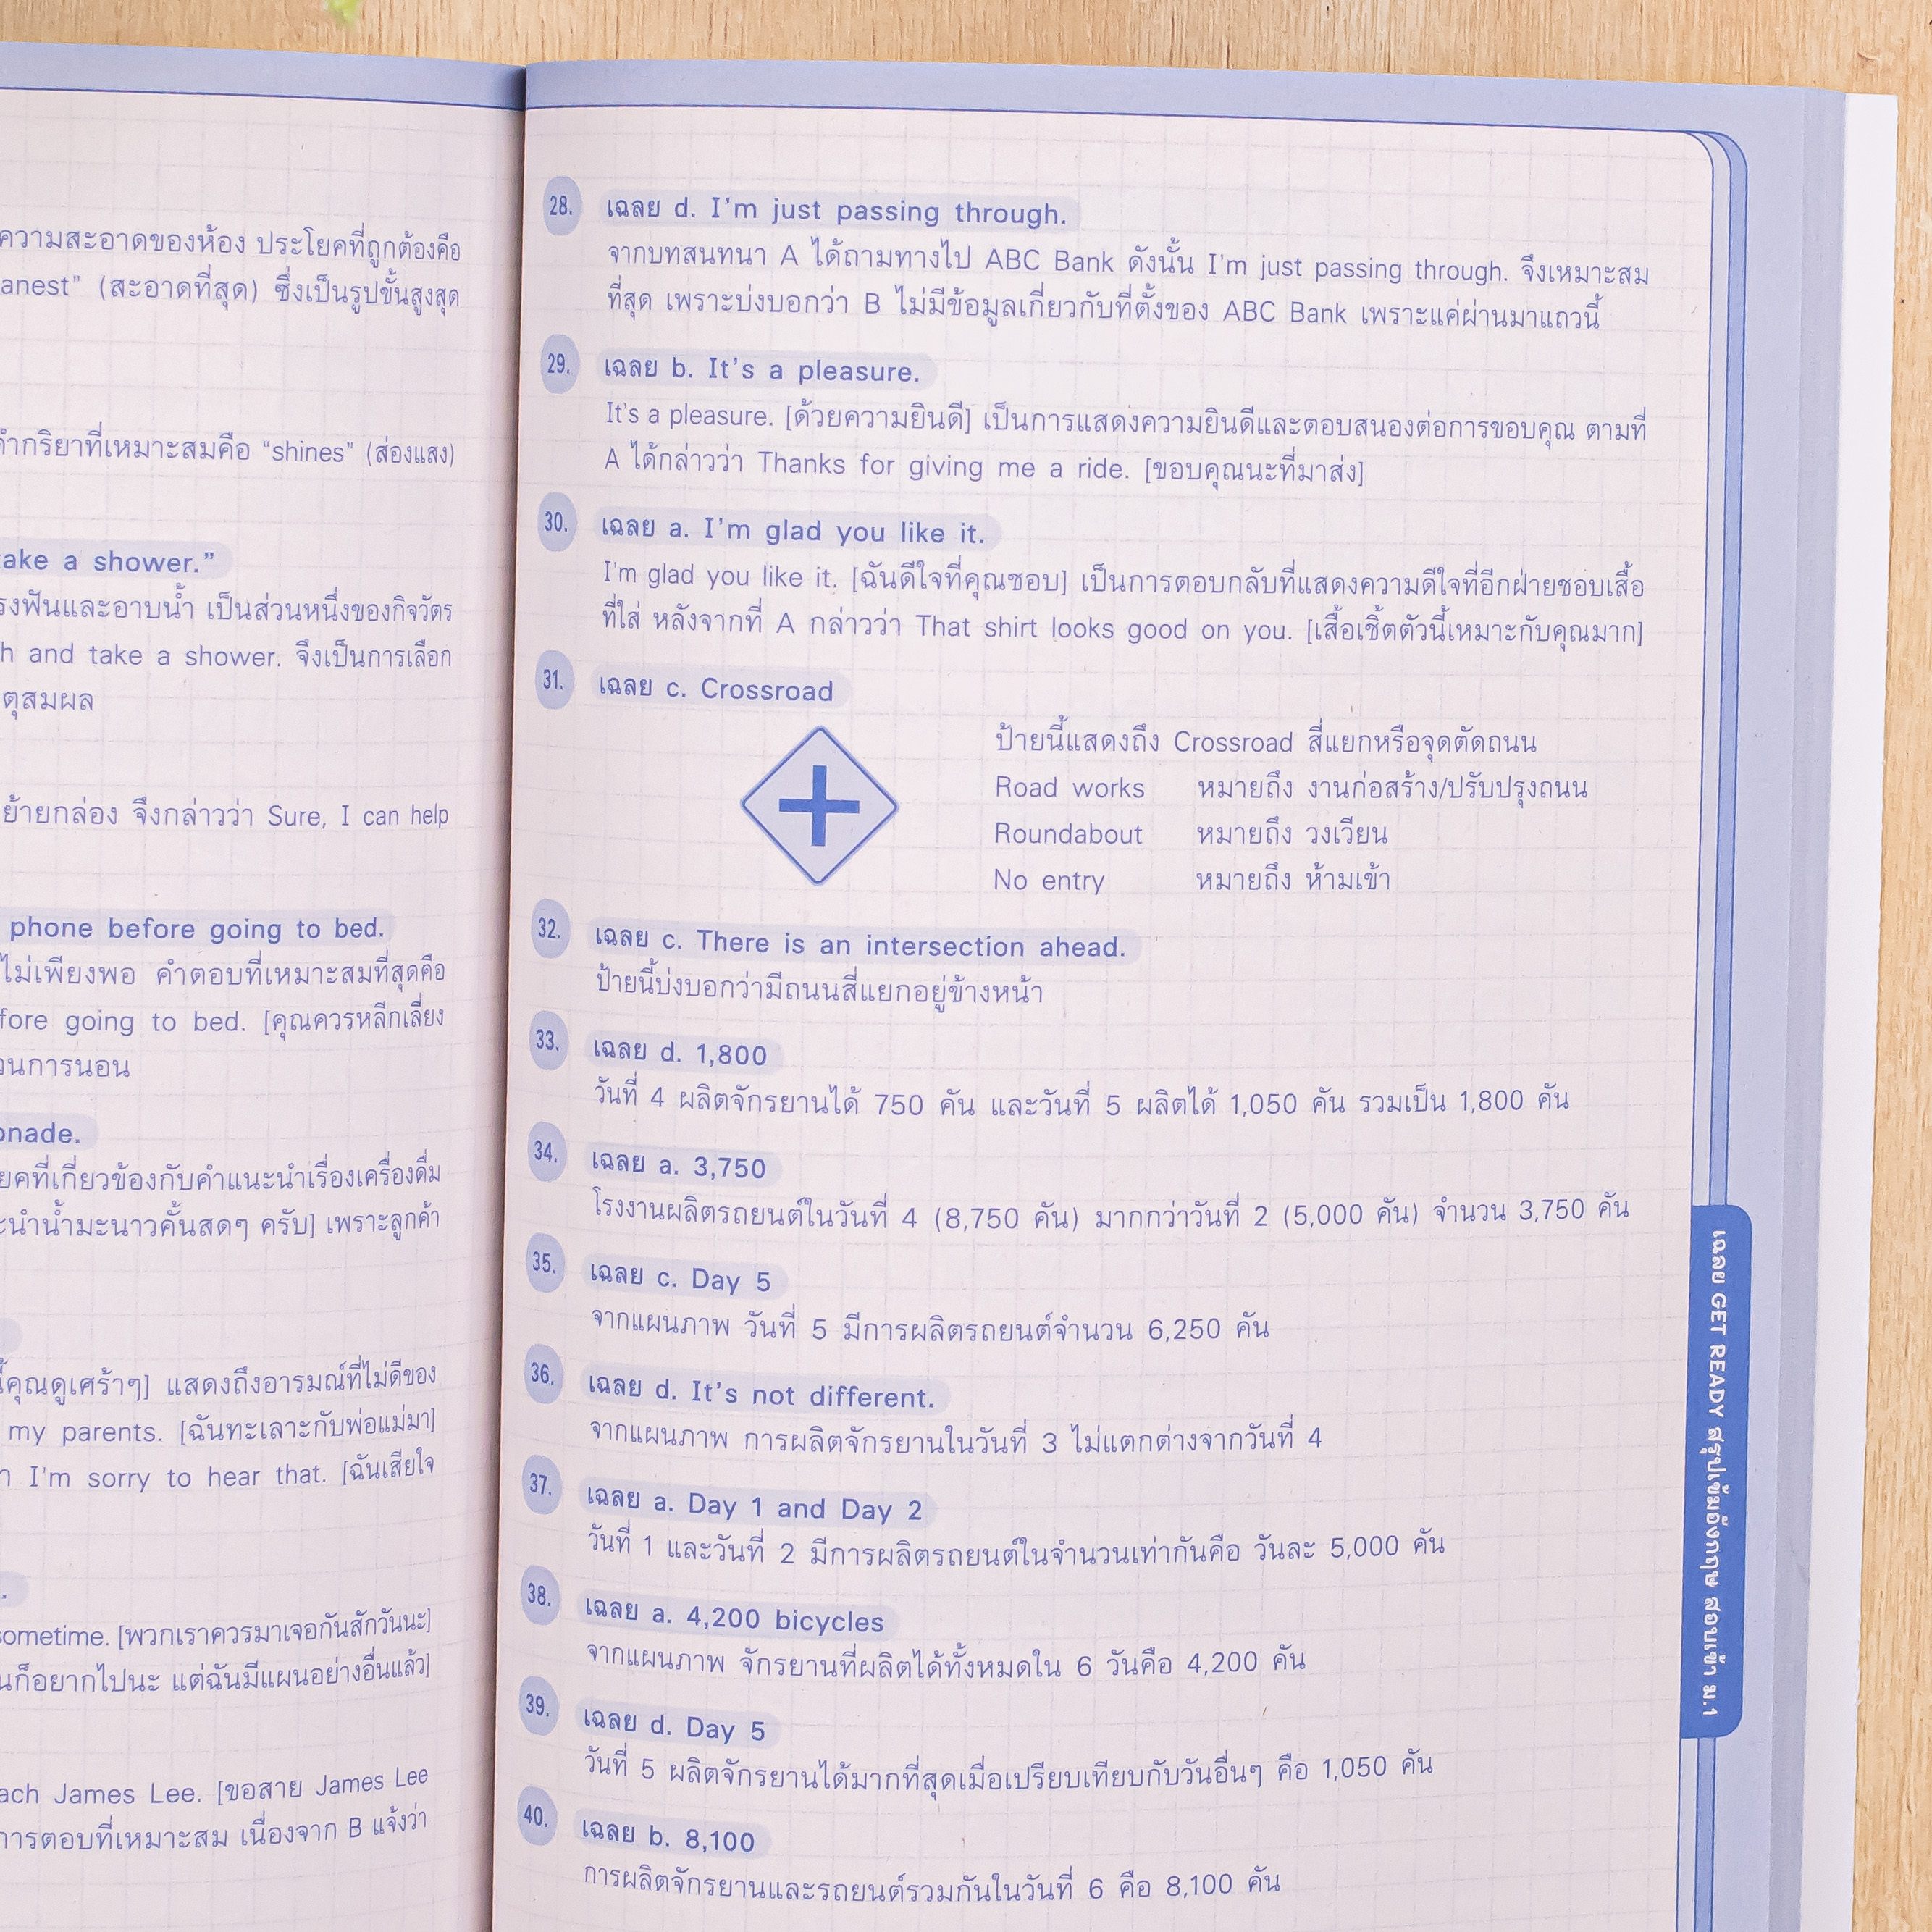 ความสะอาดของห้อง ประโยคที่ถูกต้องคือ
anest" (สะอาดที่สุด) ซึ่งเป็นรูปขั้นสูงสุด
คำกริยาที่เหมาะสมคือ "shines" (ส่องแสง)
ake a shower."
รงฟันและอาบน้ำ เป็นส่วนหนึ่งของกิจวัตร
h and take a shower. จึงเป็นการเลือก
ตุสมผล
ย้ายกล่อง จึงกล่าวว่า Sure, I can help
phone before going to bed.
ไม่เพียงพอ คำตอบที่เหมาะสมที่สุดคือ
fore going to bed. [คุณควรหลีกเลี่ยง
วนการนอน
onade.
ยคที่เกี่ยวข้องกับคำแนะนำเรื่องเครื่องดื่ม
ะนำน้ำมะนาวคั้นสดๆ ครับ] เพราะลูกค้า
คุณดูเศร้าๆ] แสดงถึงอารมณ์ที่ไม่ดีของ
my parents. [ฉันทะเลาะกับพ่อแม่มา]
I'm sorry to hear that. [ฉันเสียใจ
sometime. [พวกเราควรมาเจอกันสักวันนะ]
นก็อยากไปนะ แต่ฉันมีแผนอย่างอื่นแล้ว]
ach James Lee. [ขอสาย James Lee
การตอบที่เหมาะสม เนื่องจาก B แจ้งว่า
28. เฉลย d. I'm just passing through.
จากบทสนทนา A ได้ถามทางไป ABC Bank ดังนั้น I'm just passing through. จึงเหมาะสม
ที่สุด เพราะบ่งบอกว่า B ไม่มีข้อมูลเกี่ยวกับที่ตั้งของ ABC Bank เพราะแค่ผ่านมาแถวนี้
29. เฉลย b. It's a pleasure.
It's a pleasure. [ด้วยความยินดี] เป็นการแสดงความยินดีและตอบสนองต่อการขอบคุณ ตามที่
A ได้กล่าวว่า Thanks for giving me a ride. [ขอบคุณนะที่มาส่ง]
30. เฉลย a. I'm glad you like it.
I'm glad you like it. [ฉันดีใจที่คุณชอบ] เป็นการตอบกลับที่แสดงความดีใจที่อีกฝ่ายชอบเสื้อ
ที่ใส่ หลังจากที่ A กล่าวว่า That shirt looks good on you. [เสื้อเชิ้ตตัวนี้เหมาะกับคุณมาก]
31. เฉลย c. Crossroad
ป้ายนี้แสดงถึง Crossroad สี่แยกหรือจุดตัดถนน
Road works หมายถึง งานก่อสร้าง/ปรับปรุงถนน
Roundabout หมายถึง วงเวียน
No entry หมายถึง ห้ามเข้า
32. เฉลย c. There is an intersection ahead.
ป้ายนี้บ่งบอกว่ามีถนนสี่แยกอยู่ข้างหน้า
33. เฉลย d. 1,800
วันที่ 4 ผลิตจักรยานได้ 750 คัน และวันที่ 5 ผลิตได้ 1,050 คัน รวมเป็น 1,800 คัน
34. เฉลย a. 3,750
โรงงานผลิตรถยนต์ในวันที่ 4 (8,750 คัน) มากกว่าวันที่ 2 (5,000 คัน) จำนวน 3,750 คัน
35. เฉลย c. Day 5
จากแผนภาพ วันที่ 5 มีการผลิตรถยนต์จำนวน 6,250 คัน
36. เฉลย d. It's not different.
จากแผนภาพ การผลิตจักรยานในวันที่ 3 ไม่แตกต่างจากวันที่ 4
37. เฉลย a. Day 1 and Day 2
วันที่ 1 และวันที่ 2 มีการผลิตรถยนต์ในจำนวนเท่ากันคือ วันละ 5,000 คัน
38. เฉลย a. 4,200 bicycles
จากแผนภาพ จักรยานที่ผลิตได้ทั้งหมดใน 6 วันคือ 4,200 คัน
39. เฉลย d. Day 5
วันที่ 5 ผลิตจักรยานได้มากที่สุดเมื่อเปรียบเทียบกับวันอื่นๆ คือ 1,050 คัน
40. เฉลย b. 8,100
การผลิตจักรยานและรถยนต์รวมกันในวันที่ 6 คือ 8,100 คัน
เฉลย GET READY สรุปเข้มอังกฤษ สอบเข้า ม.1